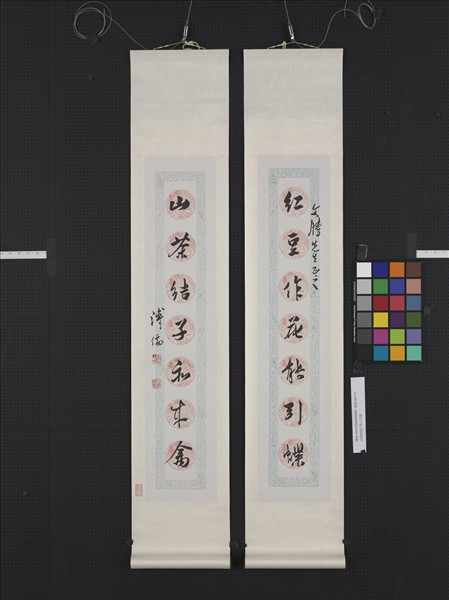 紅豆作花能引蝶
文騰先生正之
山茶結子和來禽
溥儒